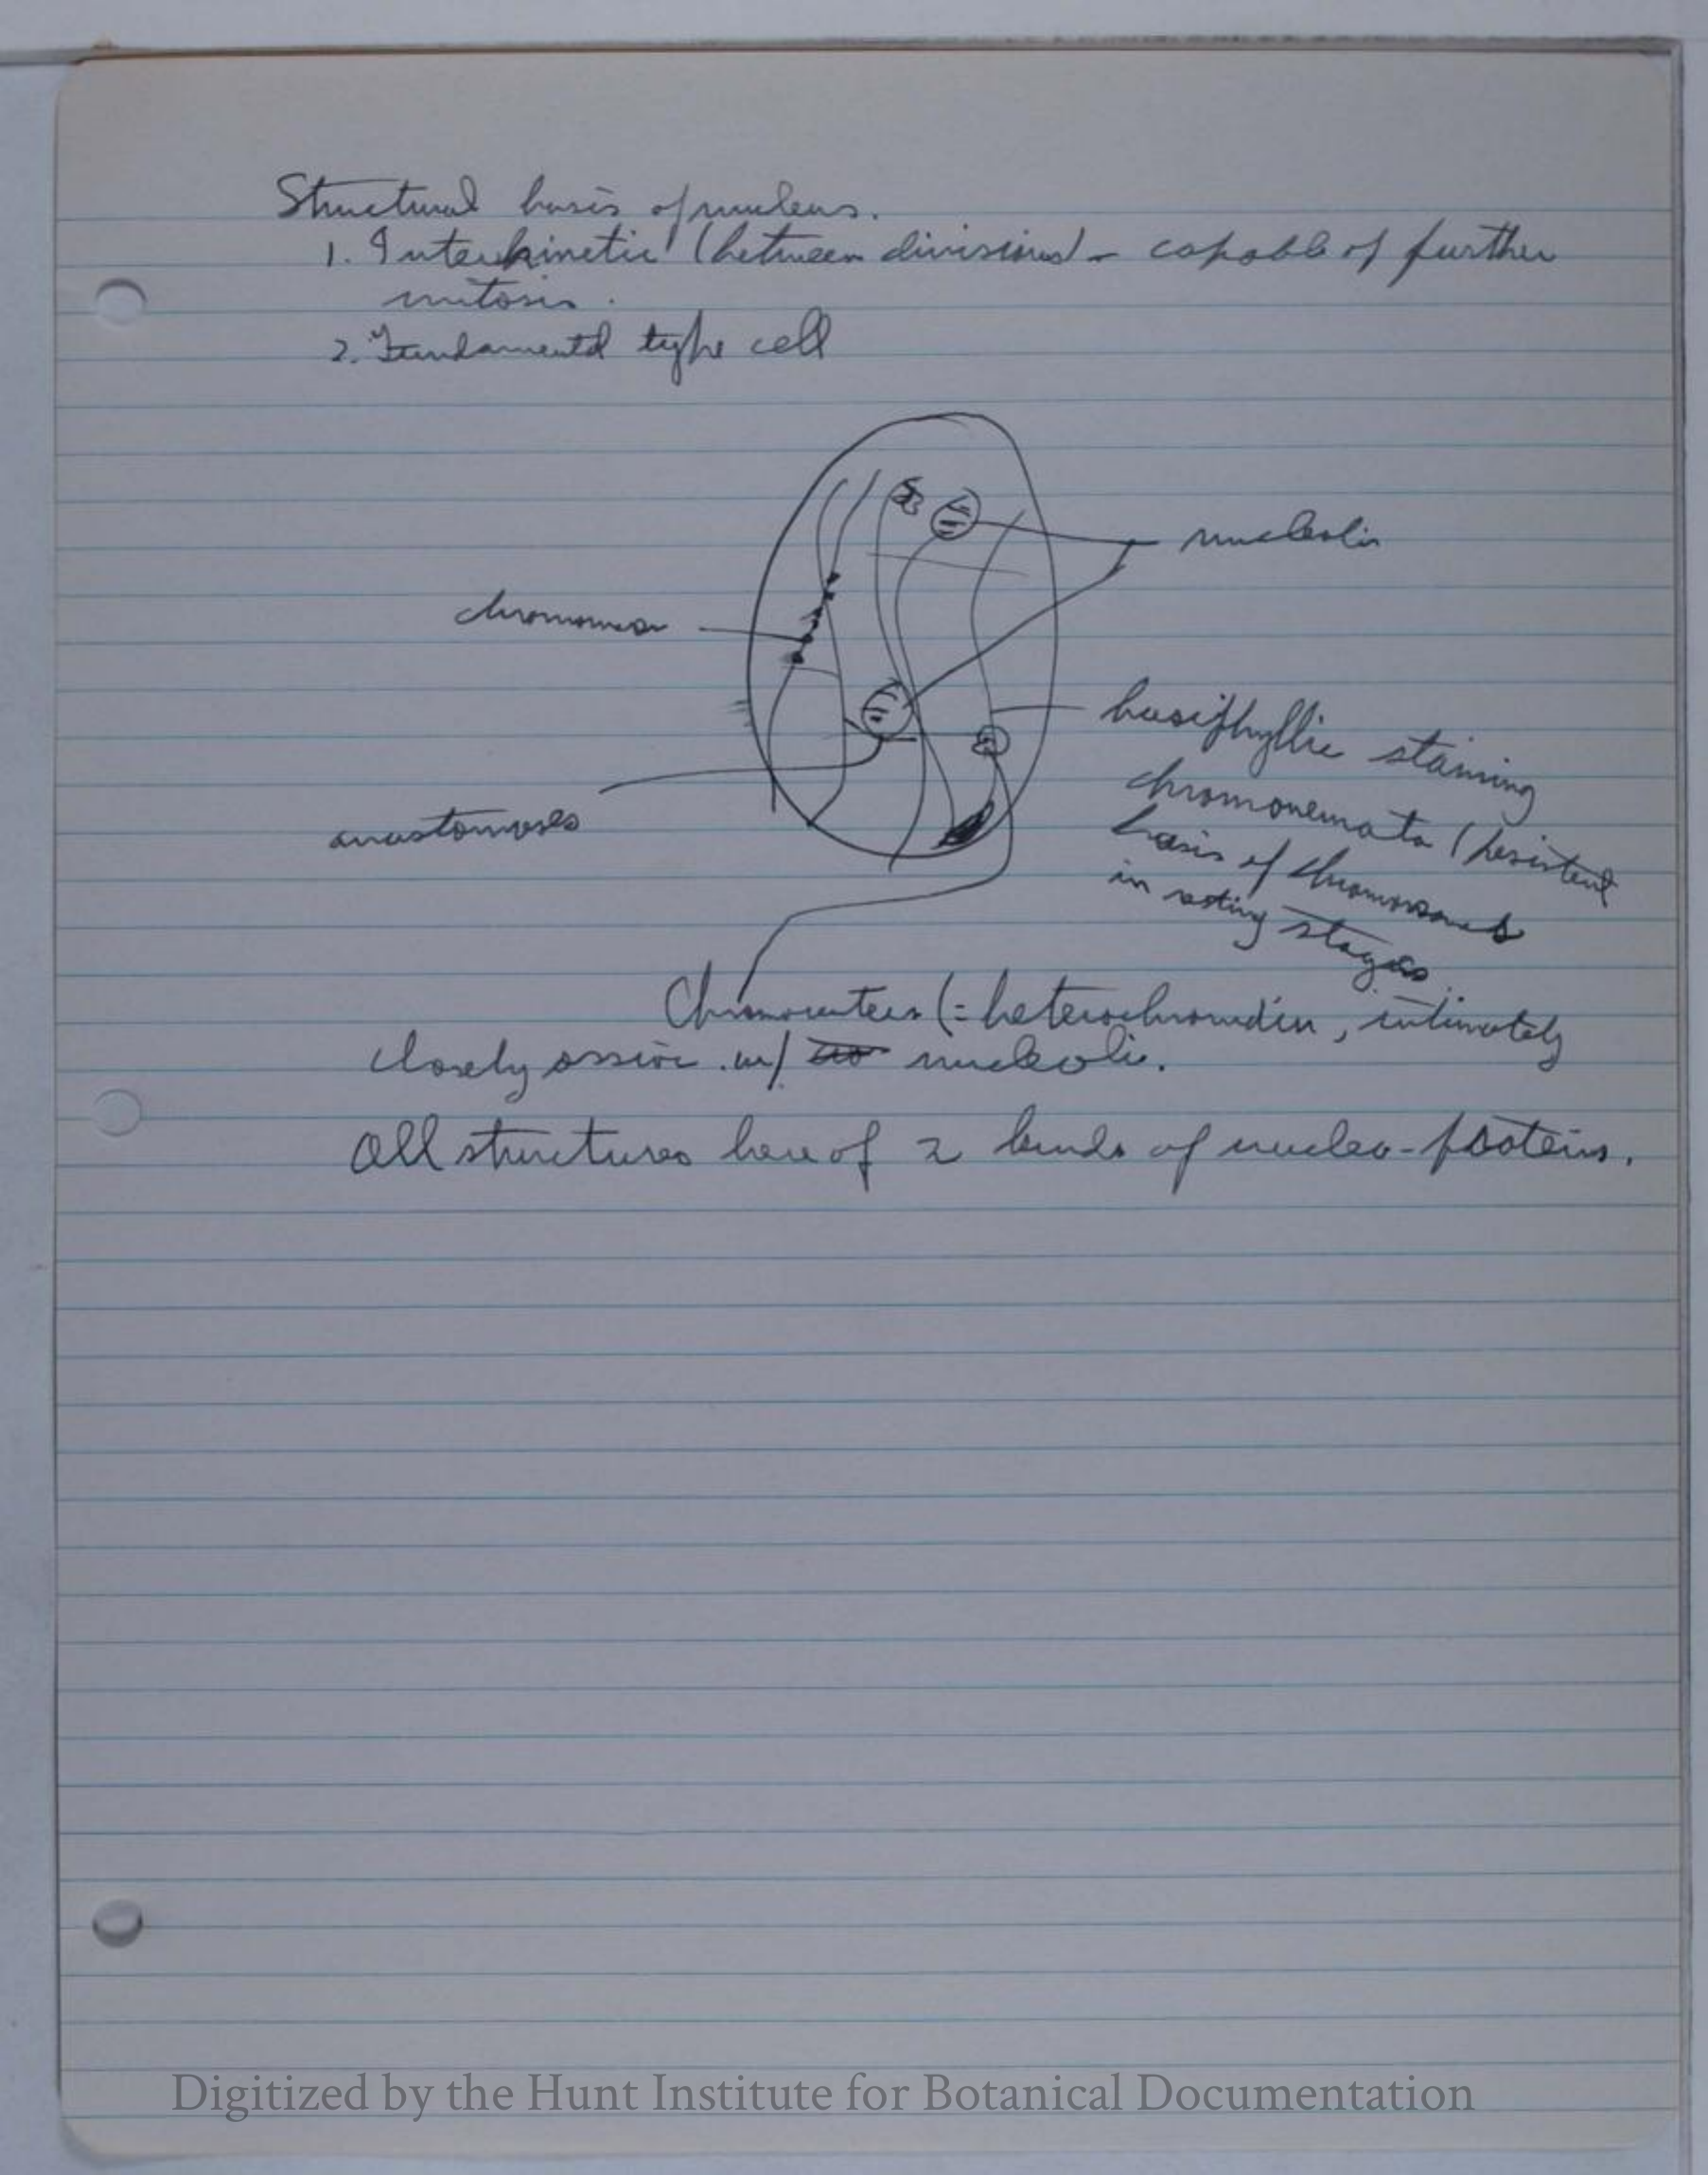 Structural basis of nucleus.
1. Interkinetic (between divisions) - capable of further
mitosis.
2. Fundamental type cell
nucleoli
chromomeres
basiphyllic staining
chromonemata (persistent
basis of chromosomes
in resting stages
anastomoses
Chromocenters (= heterochromatin, intimately
closely assoc. w/ nucleoli.
All structures here of 2 kinds of nucleo-proteins.
Digitized by the Hunt Institute for Botanical Documentation